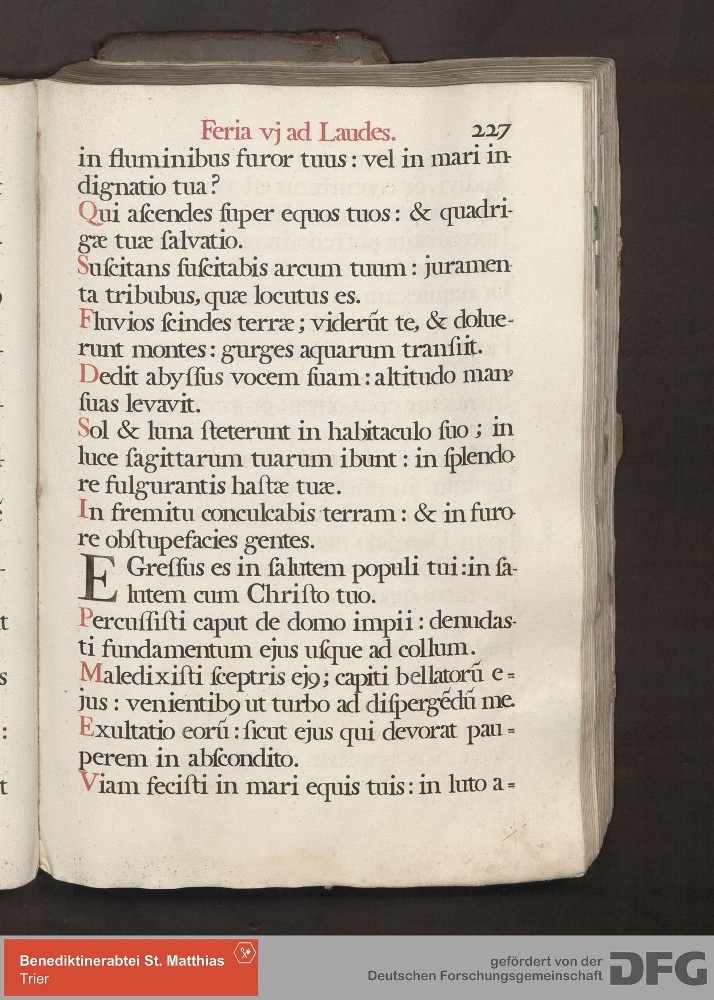 Feria vj ad Laudes. 227
in fluminibus furor tuus : vel in mari in-
dignatio tua ?
Qui aſcendes ſuper equos tuos : & quadri-
gæ tuæ ſalvatio.
Suſcitans ſuſcitabis arcum tuum : juramen-
ta tribubus, quæ locutus es.
Fluvios ſcindes terræ ; viderũt te, & dolue-
runt montes : gurges aquarum tranſiit.
Dedit abyſſus vocem ſuam : altitudo manꝰ
ſuas levavit.
Sol & luna ſteterunt in habitaculo ſuo ; in
luce ſagittarum tuarum ibunt : in ſplendo-
re fulgurantis haſtæ tuæ.
In fremitu conculcabis terram : & in furo-
re obſtupefacies gentes.
EGreſſus es in ſalutem populi tui : in ſa-
lutem cum Chriſto tuo.
Percuſſiſti caput de domo impii : denudas-
ti fundamentum ejus uſque ad collum.
Maledixiſti ſceptris ejꝰ ; capiti bellatorũ e=
jus : venientibꝰ ut turbo ad diſpergẽdũ me.
Exultatio eorũ : ſicut ejus qui devorat pau=
perem in abſcondito.
Viam feciſti in mari equis tuis : in luto a=
Benediktinerabtei St. Matthias
Trier
gefördert von der
Deutschen Forschungsgemeinschaft
DFG